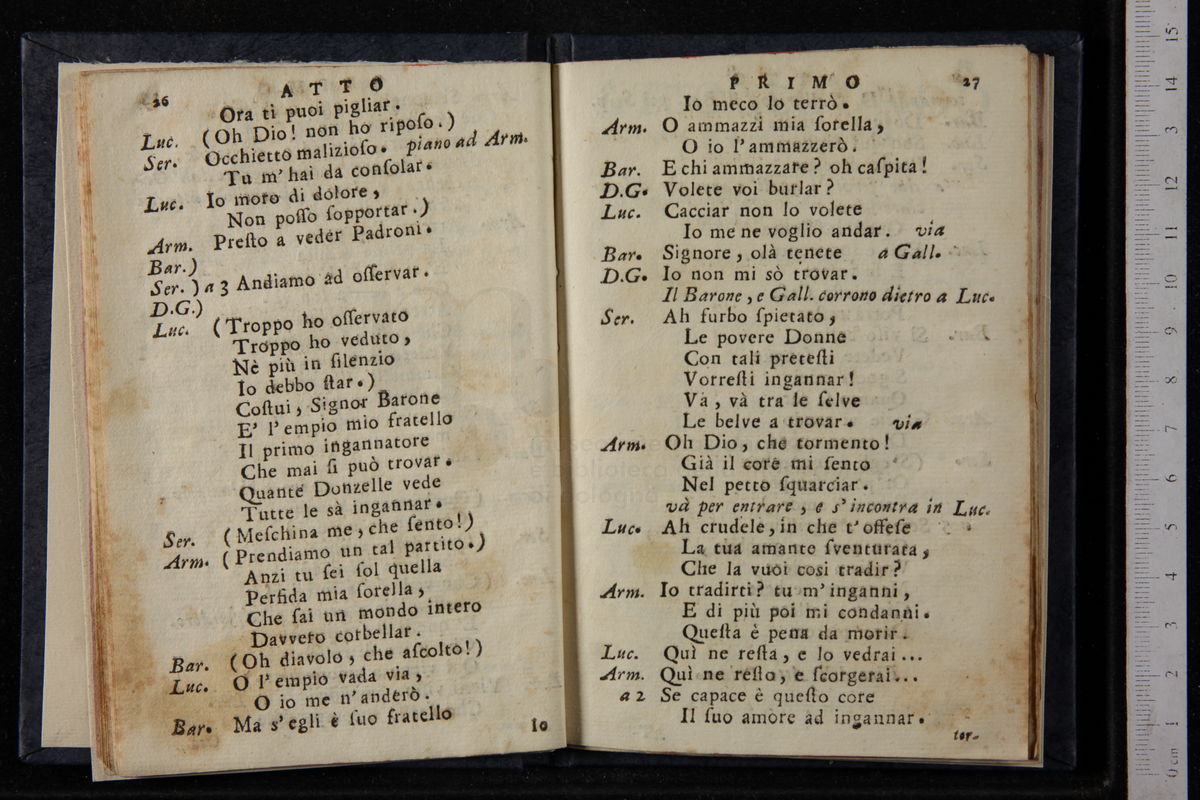 26 ATTO
Ora ti puoi pigliar.
Luc. (Oh Dio! non ho ripoſo.)
Ser. Occhietto malizioſo. piano ad Arm.
Tu m'hai da conſolar.
Luc. Io moro di dolore,
Non poſſo ſopportar.)
Arm. Preſto a veder Padroni.
Bar.)
Ser. ) a 3 Andiamo ad oſſervar.
D.G.)
Luc. (Troppo ho oſſervato
Troppo ho veduto,
Nè più in ſilenzio
Io debbo ſtar.)
Coſtui, Signor Barone
E' l'empio mio fratello
Il primo ingannatore
Che mai ſi può trovar.
Quante Donzelle vede
Tutte le sà ingannar.
Ser. (Meſchina me, che ſento!)
Arm. (Prendiamo un tal partito.)
Anzi tu ſei ſol quella
Perfida mia ſorella,
Che fai un mondo intero
Davvero corbellar.
Bar. (Oh diavolo, che aſcolto!)
Luc. O l'empio vada via,
O io me n'anderò.
Bar. Ma s'egli è ſuo fratello
Io
PRIMO 27
Io meco lo terrò.
Arm. O ammazzi mia ſorella,
O io l'ammazzerò.
Bar. E chi ammazzare? oh caſpita!
D.G. Volete voi burlar?
Luc. Cacciar non lo volete
Io me ne voglio andar. via
Bar. Signore, olà tenete a Gall.
D.G. Io non mi sò trovar.
Il Barone, e Gall. corrono dietro a Luc.
Ser. Ah furbo ſpietato,
Le povere Donne
Con tali preteſti
Vorreſti ingannar!
Và, và tra le ſelve
Le belve a trovar. via
Arm. Oh Dio, che tormento!
Già il core mi ſento
Nel petto ſquarciar.
và per entrare, e s'incontra in Luc.
Luc. Ah crudele, in che t'offeſe
La tua amante ſventurata,
Che la vuoi così tradir?
Arm. Io tradirti? tu m'inganni,
E di più poi mi condanni.
Queſta è pena da morir.
Luc. Quì ne reſta, e lo vedrai...
Arm. Quì ne reſto, e ſcorgerai...
a 2 Se capace è queſto core
Il ſuo amore ad ingannar.